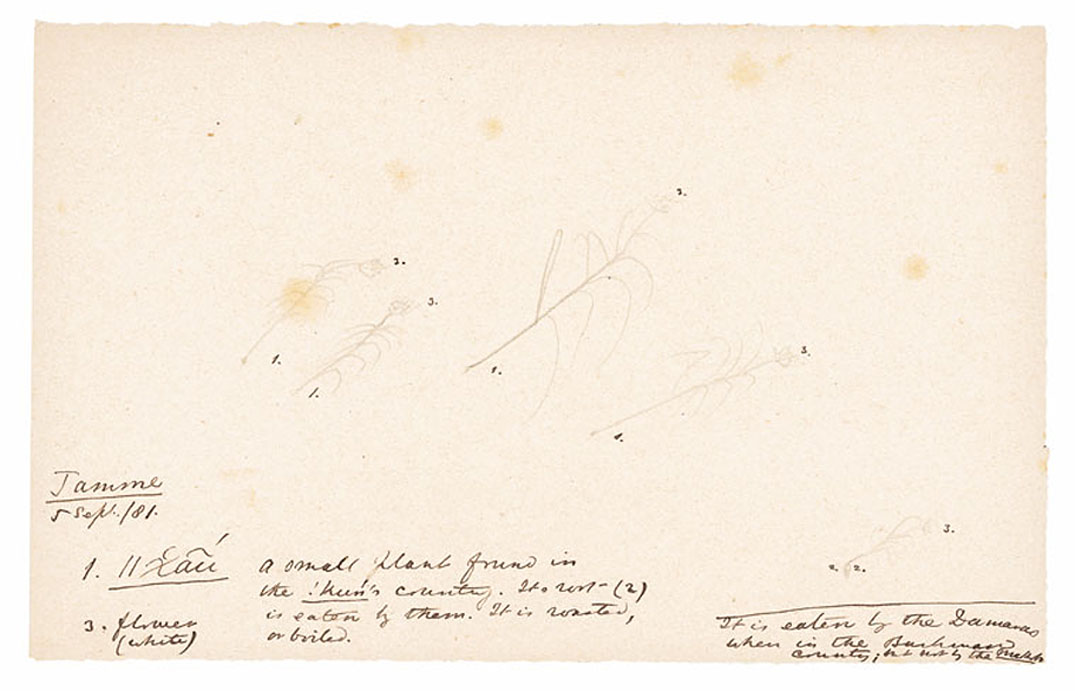 3.
3.
3.
1.
1.
1.
3.
1.
Tamme
5 Sept./81.
3.
2.
1. a small plant found in
the !kun's country. Its root (2)
3. flower is eaten by them. It is roasted,
(white) or boiled.
It is eaten by the Damaras
when in the Bushman
country; but not by the